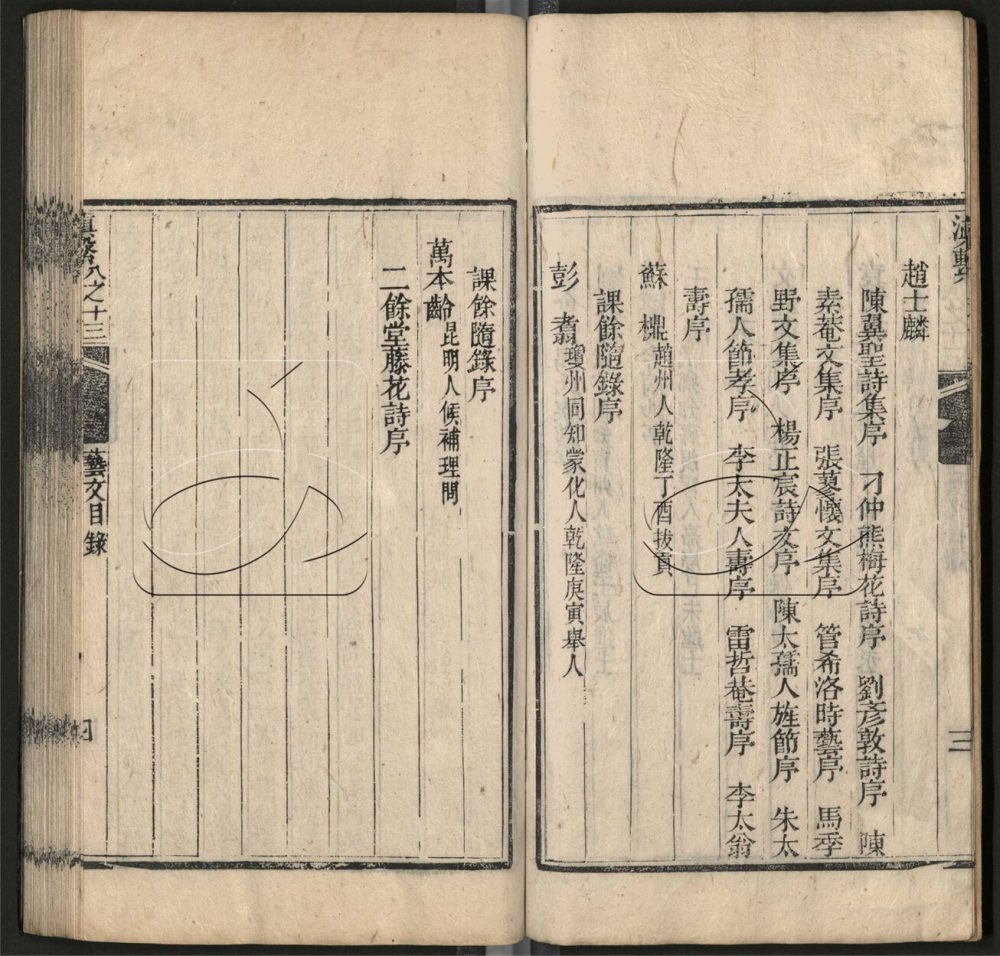 滇繫
三
趙士麟
陳翼聖詩集序 刁仲熊梅花詩序 劉彥敦詩序 陳
素菴文集序 張蓼懷文集序 管希洛時藝序 馬季
野文集序 楊正宸詩文序 陳太孺人旌節序 朱太
孺人節孝序 李太夫人壽序 雷哲菴壽序 李太翁
壽序
蘇 櫆趙州人乾隆丁酉拔貢
課餘隨錄序
彭 翥瓊州同知蒙化人乾隆庚寅舉人
課餘隨錄序
萬本齡昆明人候補理問
二餘堂藤花詩序
滇繫 八之十三
藝文目錄